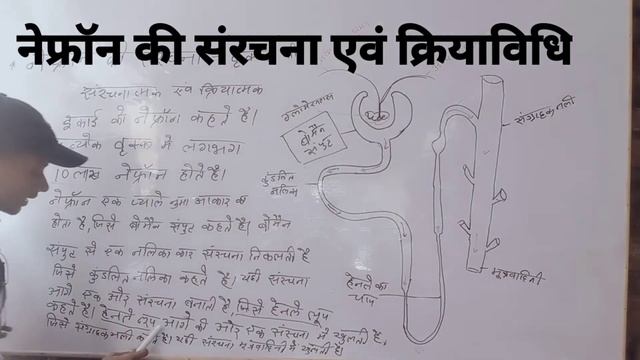 नेफ्रॉन की संरचना एवं क्रियाविधि
संरचनात्मक एवं क्रियात्मक
इकाई को नेफ्रॉन कहते है।
वृक्क में लगभग
10 लाख नेफ्रॉन होते है।
नेफ्रॉन एक प्याले नुमा आकार का
होता है, जिसे बोमैन संपुट कहते है। बोमैन
संपुट से एक नलिका कार संरचना निकलती है
जिसे कुंडलित नलिका कहते है। यही संरचना
आगे एक और संरचना बनाती है, जिसे हेनले लूप
कहते है। हेनले लूप आगे की और एक संरचना में खुलती है,
जिसे संग्राहक नली कहते है। यही संरचना मूत्रवाहिनी में खुलती है।
ग्लोमेरुलस
बोमैन
संपुट
कुंडलित
नलिका
हेनले का
संग्राहक नली
मूत्रवाहिनी